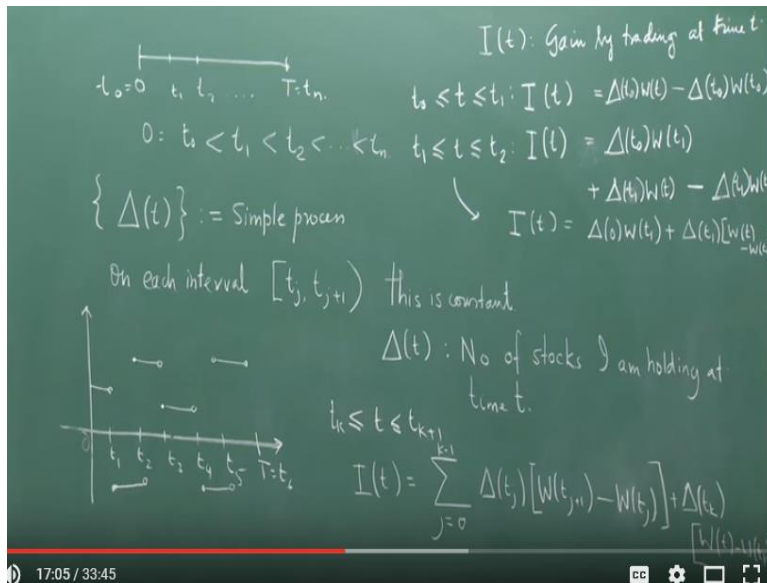 t₀=0 t₁ t₂ ... T=tₙ
0 = t₀ < t₁ < t₂ < ... < tₙ
{ Δ(t) } := Simple process
On each interval [tⱼ, tⱼ₊₁) this is constant.
0 t₁ t₂ t₃ t₄ t₅ T=t₆
I(t): Gain by trading at time t.
t₀ ≤ t ≤ t₁: I(t) = Δ(t₀)W(t) - Δ(t₀)W(t₀)
t₁ ≤ t ≤ t₂: I(t) = Δ(t₀)W(t₁)
+ Δ(t₁)W(t) - Δ(t₁)W(t
I(t) = Δ(0)W(t₁) + Δ(t₁)[W(t)
-W(t
Δ(t): No of stocks I am holding at
time t.
tₖ ≤ t ≤ tₖ₊₁
k-1
I(t) = Σ Δ(tⱼ)[W(tⱼ₊₁) - W(tⱼ)] + Δ(tₖ)
j=0
[W(t)-W(t
17:05 / 33:45
CC